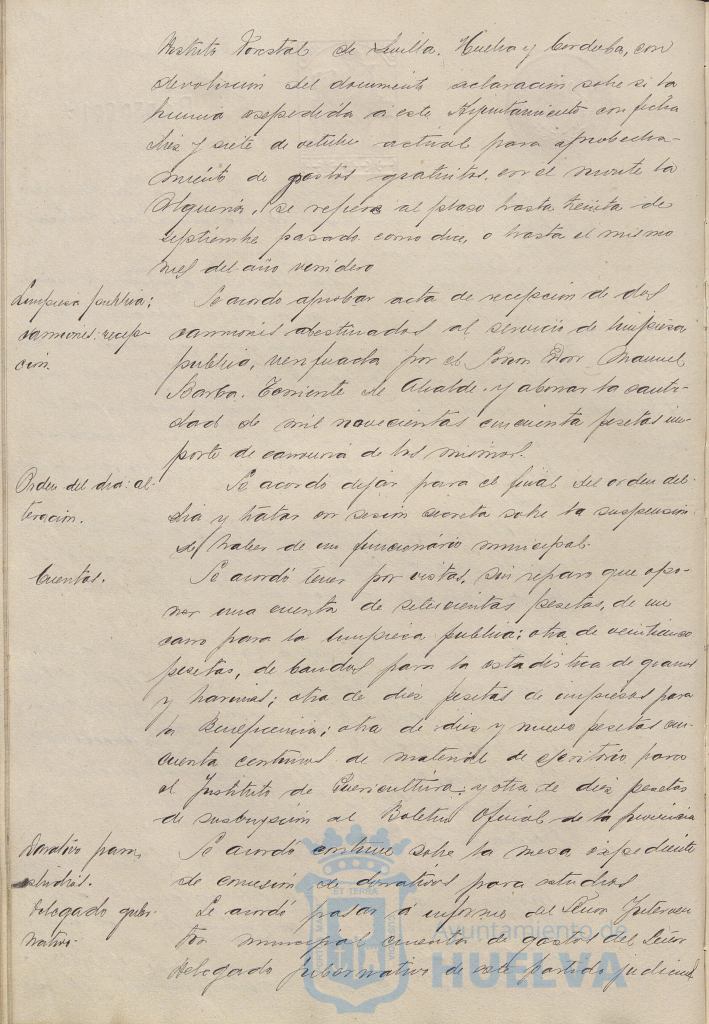 Distrito Forestal de Sevilla, Huelva y Córdoba, con
devolución del documento aclaración sobre si la
licencia expedida a este Ayuntamiento con fecha
y siete de octubre actual para aprobecha-
miento de pastos gratuitos en el monte la
Alquería, se refiere al plazo hasta treinta de
septiembre pasado como dice, o hasta el mismo
mes del año venidero
Limpieza pública;
camiones: recep-
ción.
Se acordó aprobar acta de recepción de dos
camiones destinados al servicio de limpieza
pública, verificada por el Señor Don Manuel
Barba, Teniente de Alcalde, y abonar la canti-
dad de mil novecientas cincuenta pesetas im-
porte de de los mismos.
Orden del día: al-
teración.
Se acordó dejar para el final del orden del
día y tratar en sesión secreta sobre la suspensión
de haber de un funcionario municipal.
Cuentas.
Se acordó tener por vistas, sin reparo que opo-
ner una cuenta de setecientas pesetas, de un
carro para la limpieza pública; otra de veinticinco
pesetas, de bandos para la estadística de granos
y harinas; otra de diez pesetas de impresos para
la Beneficencia; otra de diez y nueve pesetas cin-
cuenta centimos de material de escritorio para
el Instituto de Puericultura; y otra de diez pesetas
de suscripción al Boletín Oficial de la provincia
Donativo para
estudios.
Se acordó continue sobre la mesa expediente
de concesión de donativos para estudios
Delegado guber-
nativo.
Se acordó pasar a informe del Señor Interven
tor municipal cuenta de gastos del Señor
Delegado gubernativo de este partido judicial
Ayuntamiento de
HUELVA